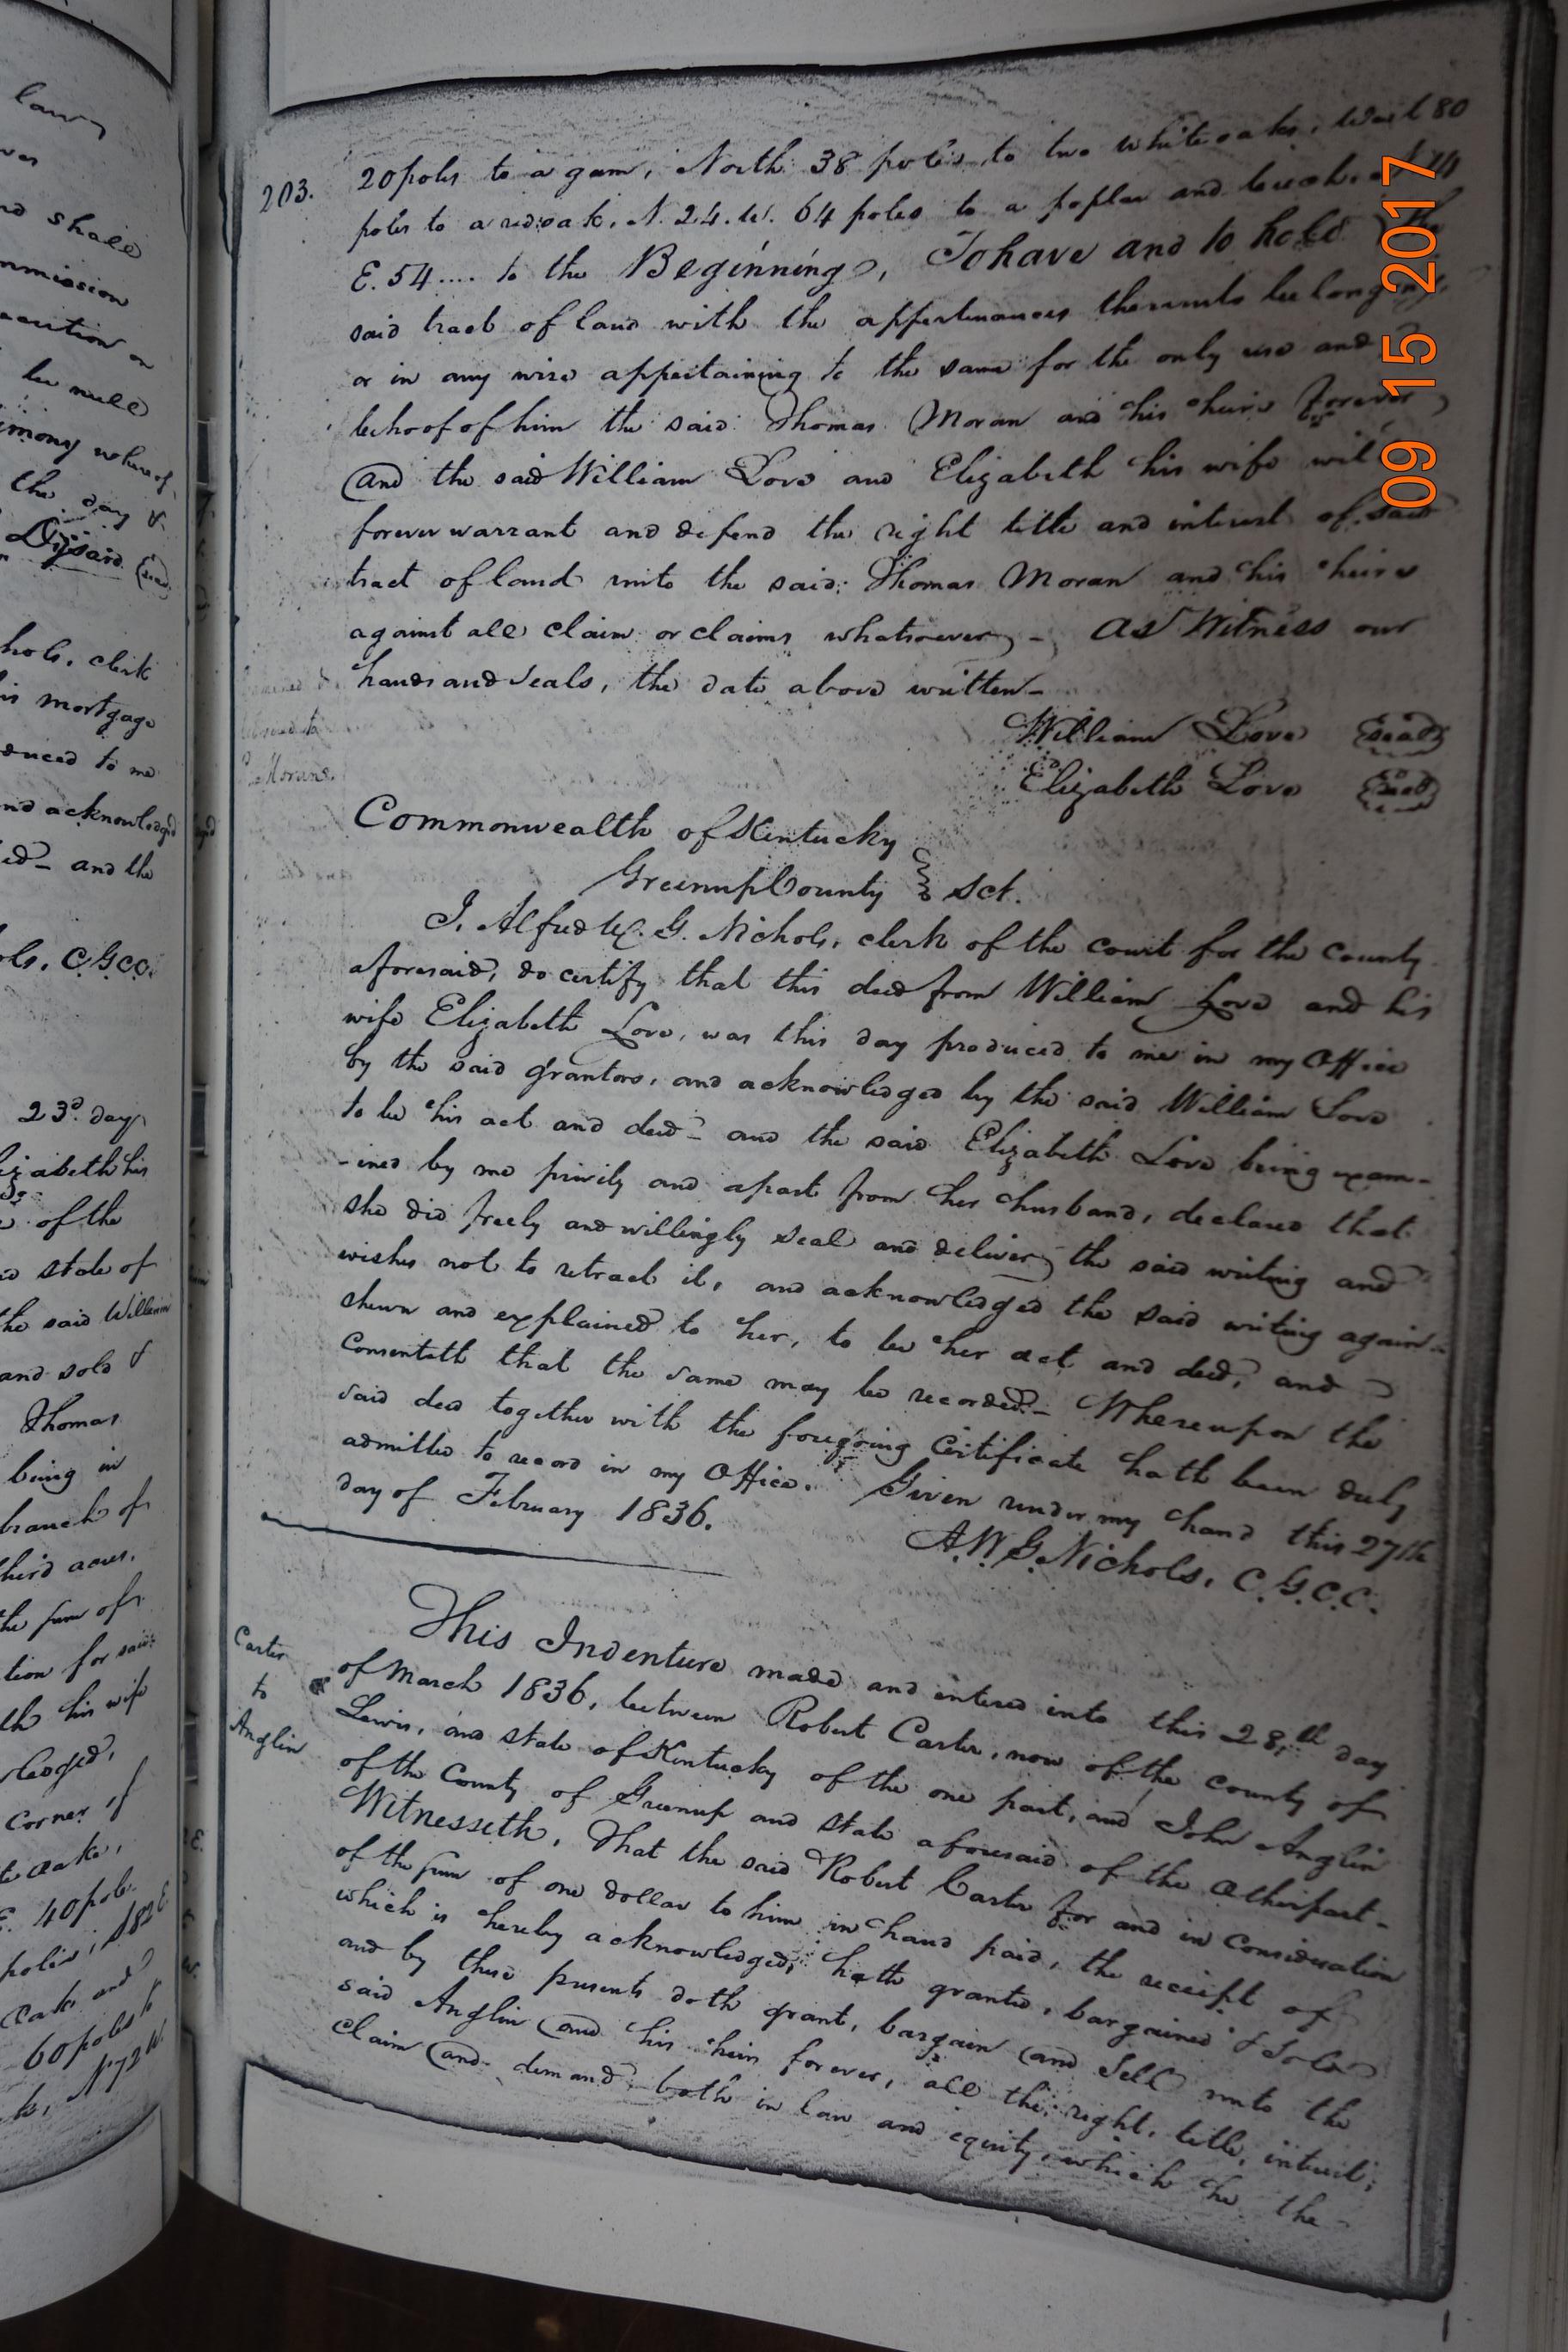 law
shall
mmission
be null
whereof
the day &
(Seal)
hols, clerk
mortgage
duced to me
and acknowledged
ed - and the
ols, C.G.C.C.
23d. day
izabeth his
of the
state of
the said William
and sold &
Thomas
being in
branch of
third acres,
the sum of
tion for said
th his wife
ledged,
corner of
te oake,
E. 40 pole
poles; S82E
oak and
60 poles to
N72W
203.
20 poles to a gum, North 38 poles to two white oaks, West 80
poles to a redoak, N. 24. W. 64 poles to a poplar and beech, N 14
E. 54.... to the Beginning, To have and to hold the
said tract of land with the appertenances thereunto belonging,
or in any wise appertaining to the same for the only use and
behoof of him the said Thomas Moran and his heirs forever,
and the said William Love and Elizabeth his wife will
forever warrant and defend the right title and interest of said
tract of land unto the said Thomas Moran and his heirs
against all claim or claims whatsoever -, As Witness our
hands and seals, the date above written -
William Love (Seal)
Elizabeth Love (Seal)
Commonwealth of Kentucky
Greenup County } Sct.
I, Alfred W. G. Nichols, clerk of the court for the County
aforesaid, do certify that this deed from William Love and his
wife Elizabeth Love, was this day produced to me in my Office
by the said grantors, and acknowledged by the said William Love
to be his act and deed - and the said Elizabeth Love being exam-
-ined by me privily and apart from her husband, declared that
she did freely and willingly seal and deliver the said writing and
wishes not to retract it, and acknowledged the said writing again
shewn and explained to her, to be her act and deed, and
consenteth that the same may be recorded - Whereupon the
said deed together with the foregoing Certificate hath been duly
admitted to record in my Office. Given under my hand this 27th
day of February 1836.
A. W. G. Nichols, C.G.C.C.
Carter
to
Anglin
This Indenture made and entered into this 28th day
of March 1836, between Robert Carter, now of the county of
Lewis, and state of Kentucky of the one part, and John Anglin
of the County of Greenup and state aforesaid of the other part -
Witnesseth, That the said Robert Carter for and in Consideration
of the sum of one dollar to him in hand paid, the receipt of
which is hereby acknowledged, hath granted, bargained & Sold
and by these presents doth grant, bargain and Sell unto the
said Anglin and his heirs forever, all the right, title, interest,
claim and demand both in law and equity, which he the -
09 15 2017